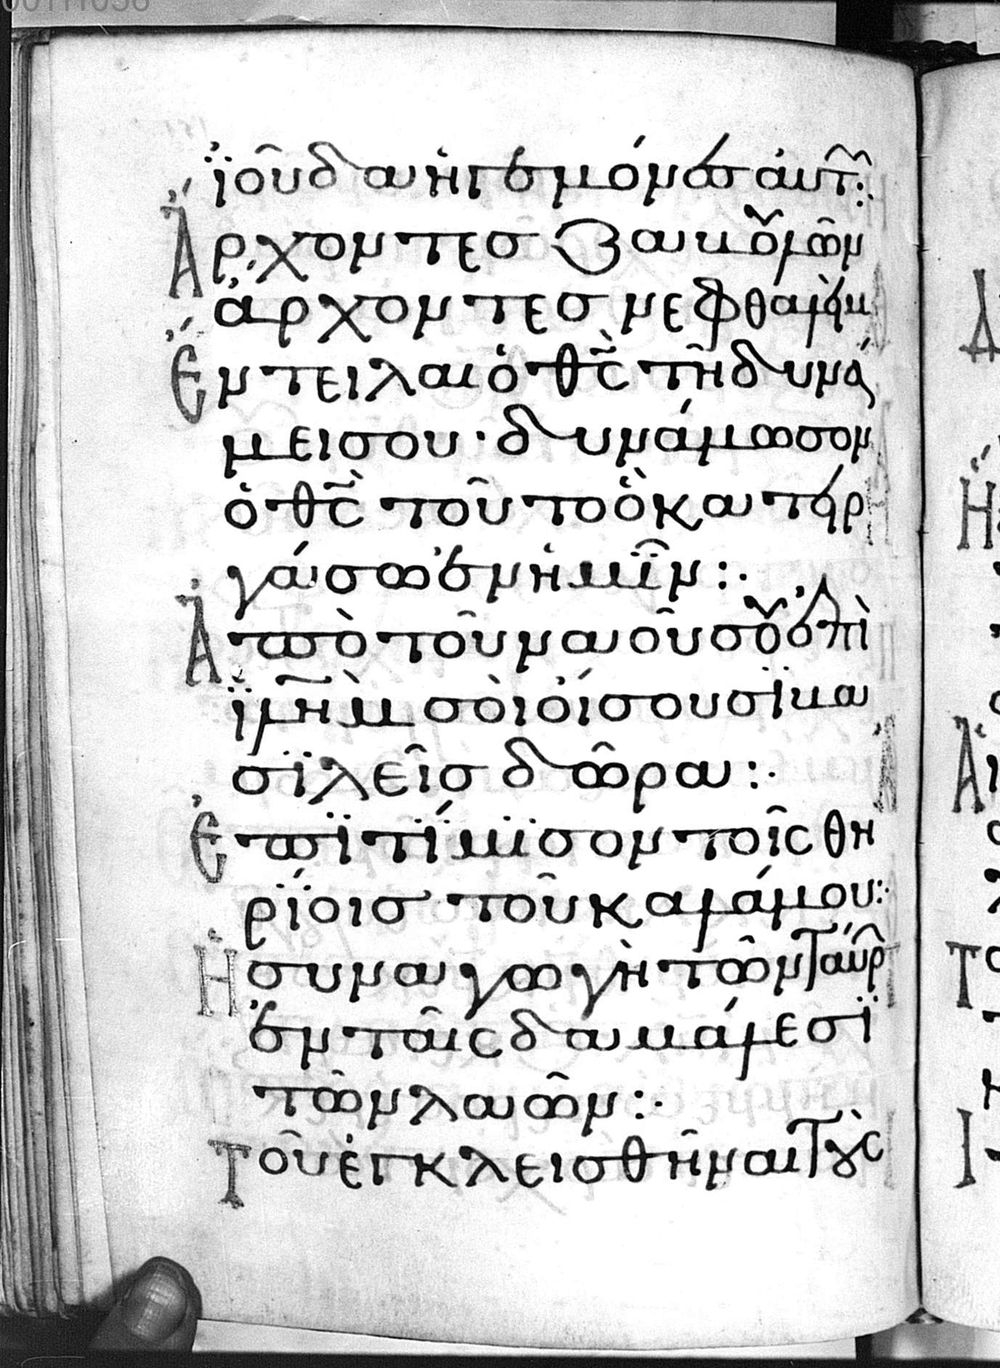 00111056
ϊοῦδα ἡγεμόνεσ ἀυτ῀:
Ἄρχοντεσ ζαυουλὼν
ἄρχοντεσ νεφθαλὴμ
Ἔντειλαι ὁ θς̄ τῆ δυνά
μει σου · δυνάμωσον
ὁ θς̄ τοῦτο ὃ κατήρ
γάσω ἐν ἡμῖν :·
Ἀπὸ τοῦ ναοῦ σου ἐπὶ
ϊλ̄ὴμ σὸι ὀίσουσϊ βα
σϊλεῖσ δῶρα :·
Ἐπϊτίμϊσον τοῖς θη
ρίοισ τοῦ καλάμου :·
Ἡ συναγωγὴ τῶν ταύρ
ἐν ταῖς δαμάλεσϊ
τῶν λαῶν :·
Τοῦ ἐγκλεισθῆναι τοὺς